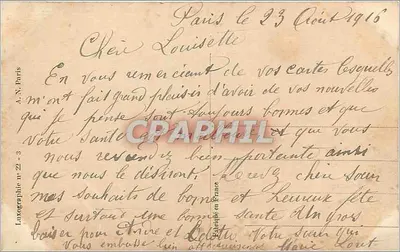 Paris, le 23 Août 1916
Chère Louisette
En vous remerciant de vos cartes lesquelles
m'ont fait grand plaisir d'avoir de vos nouvelles
qui je pense sont toujours bonnes et que
votre santé et que vous
nous reviendrez bien portante ainsi
que nous le disiront. Recevez chère sœur
mes souhaits de bonne et heureuse fête
et surtout une bonne santé Un gros
baiser pour et Votre sœur qui
vous embrasse bien Marie
Luxographie nº 22 - 3
A. N. Paris
Fabriqué en France
CPARHIL